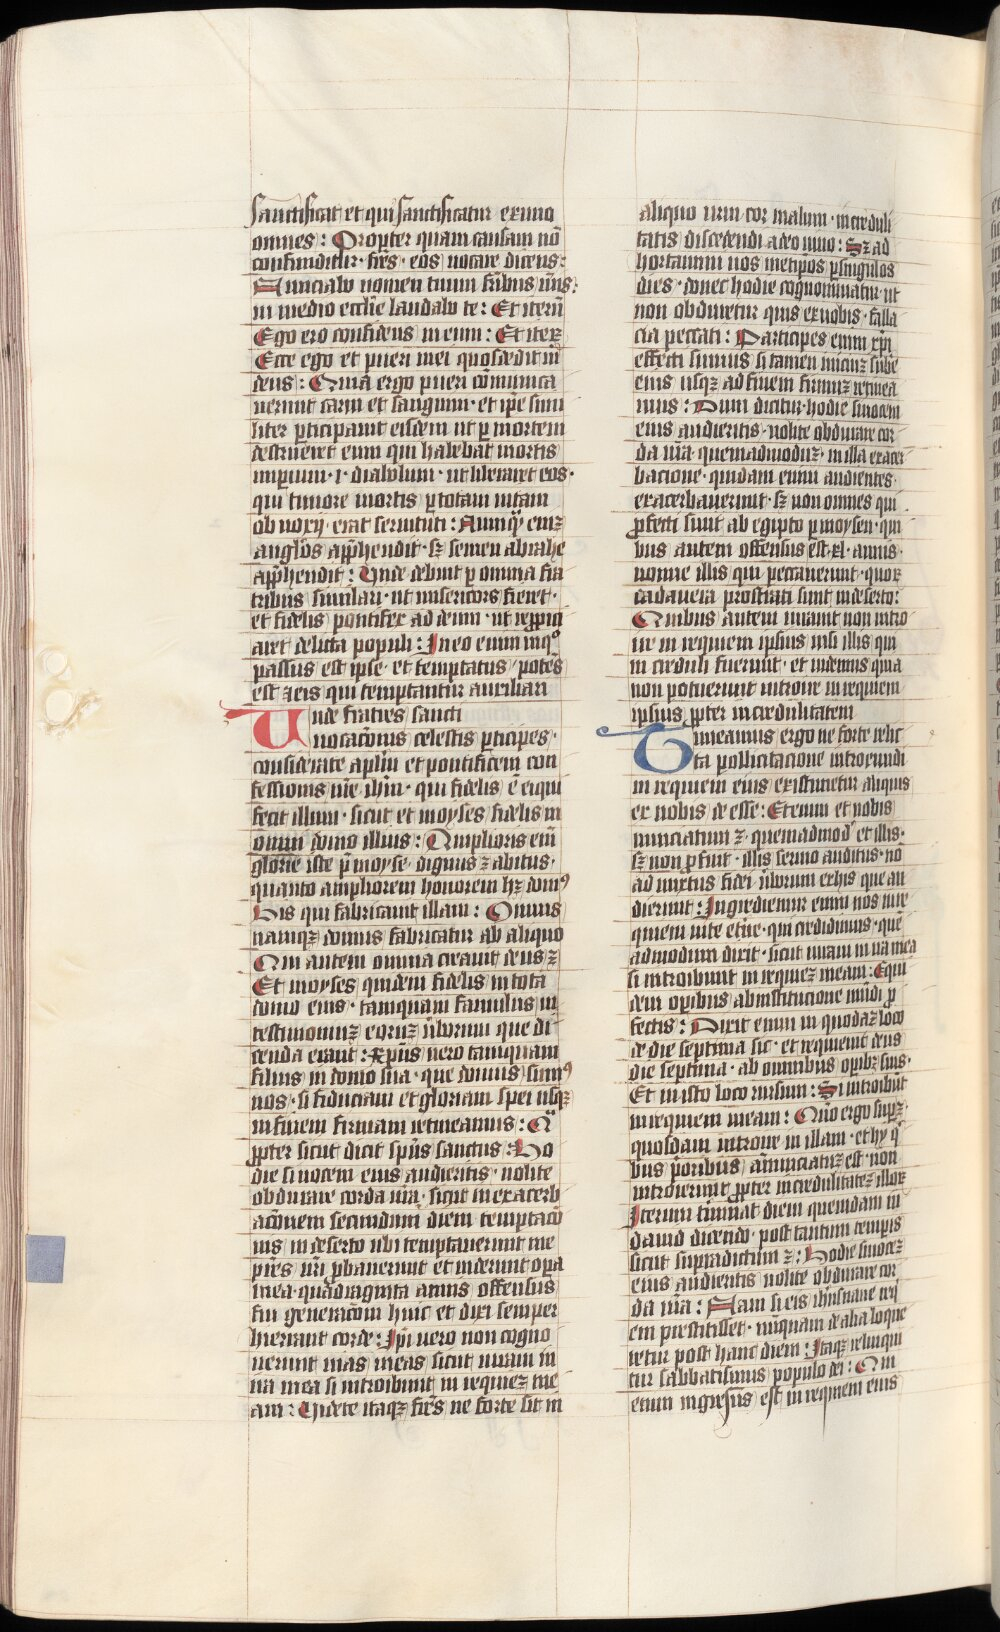 sanctificat et qui sanctificatur ex uno
omnes : Propter quam causam nō
confunditur · frēs · eos vocare dicens :
Nunciabo nomen tuum frībus meis :
in medio ecclīe laudabo te : Et iterū
Ego ero confidens in eum : Et iteꝝ
Ecce ego et pueri mei quos dedit m̄
deus : Quia ergo pueri cōmunica
verunt carni et sanguini · et ipē simi
liter ꝑticipauit eisdem ut ꝑ mortem
destrueret eum qui habebat mortis
imperium · i · diabolum · ut liberaret eos ·
qui timore mortis ꝑ totam uitam
obnoxij · erāt seruituti : Nunqͣ eniꝫ
anglōs app̄hendit · sꝫ semen abrahe
app̄hendit : Unde debuit ꝑ omnia fra
tribus similari · ut misericors fieret ·
et fidelis pontifex ad deum · ut repropici
aret delicta populi : In eo enim in qͦ
passus est ipse · et temptatus · potēs
est ꝫ eis qui temptantur auxiliari
Unde fratres sancti
uocacōnis celestis ꝑticipes ·
considerate aplīm et pontificem con
fessionis nr̄e ihm̄ · qui fidelis ē ei qui
fecit illum · sicut et moyses fidelis in
omni domo illius : Amplioris enī
glorie iste p̄ moyse · dignus ꝫ habitus ·
quanto ampliorem honorem hꝫ domꝰ
his qui fabricauit illam : Omnis
namqꝫ domus fabricatur ab aliquo
Qui autem omnia creauit deus ꝫ
Et moyses quidem fidelis in tota
domo eius · tamquam famulus in
testimoniuꝫ eoruꝫ ūborum que di
cenda erant : xp̄us vero tamquam
filius in domo sua · que domus sumꝰ
nos · si fiduciam et gloriam spei usqꝫ
in finem firmam retineamus : Qͣ
ꝓpter sicut dicit sp̄us sanctus : Ho
die si uocem eius audieritis · nolite
obdurare corda ur̄a · sicut in exacerb
acōnem secundum diem temptacō
nis in deserto ubi temptauerunt me
pr̄es ur̄i ꝓbauerunt et uiderunt oꝑa
mea · quadraginta annis offensus
fui generacōni huic et dixi semper
hierrant corde : Ip̄i uero non cogno
uerunt uias meas sicut iuraui in
ira mea si introibunt in requieꝫ me
am : Uidete itaqꝫ frēs ne forte sit in
aliquo ur̄m cor malum · increduli
tatis discedendi a deo uiuo : Sꝫ ad
hortamini uos metip̄os ꝑ singulos
dies · donec hodie cognominatur ut
non obduretur quis ex uobis · falla
cia peccati : Participes enim xp̄i
effecti sumus si tamen inicium sube
eius usqꝫ ad finem firmuꝫ retinea
mus : Dum dicitur · hodie si uocem
eius audieritis · nolite obdurare cor
da ur̄a · quemadmoduꝫ · in illa exacer
bacione · quidam enim audientes ·
exacerbauerunt · sꝫ non omnes qui
ꝓfecti sunt ab egipto ꝑ moysen · qui
bus autem offensus est · xl · annis ·
nonne illis qui peccauerunt · quoꝝ
cadauera prostrati sunt in deserto :
Quibus autem iurauit non intro
ire in requiem ipsius nisi illis qui
increduli fuerunt · et uidemus quia
non potuerunt introire in requiem
ipsius ꝓpter incredulitatem
Timeamus ergo ne forte relic
ta pollicitacione introeundi
in requiem eius existimetur aliquis
ex nobis deesse : Etenim et nobis
nunciatum ꝫ · quemadmodͫ et illis ·
sꝫ non ꝓfuit · illis sermo auditus · nō
admixtus fidei ūborum ex his que au
dierunt : Ingrediemur enim nos in re
quiem iute etūe · qui credidimus · quē
admodum dixit · sicut iuraui in ira mea
si introibunt in requieꝫ meam : Equi
dem oꝑibus ab institucione mūdi ꝑ
fectis : Dixit enim in quodaꝫ loco
de die septima sic · et requieuit deus
die septima · ab omnibus oꝑibꝫ suis ·
Et in isto loco rursum : Si introibūt
in requiem meam : Qm̄o ergo suꝑꝫ
quosdam introire in illam · et hy qͥ
bus prioribus annunciatuꝫ est · non
introierunt ꝓpter incredulitateꝫ illoꝝ
Iterum tīminat diem quendam in
dauid dicendo · post tantum temporis
sicut supradictum ꝫ : Hodie si uoceꝫ
eius audieritis nolite obdurare cor
da ur̄a : Nam si eis ihūs nane req̄
em prestitisset · nūquam de alia loque
retur post hanc diem : Itaqꝫ relinqui
tur sabbatismus populo dei : Qui
enim ingressus est in requiem eius